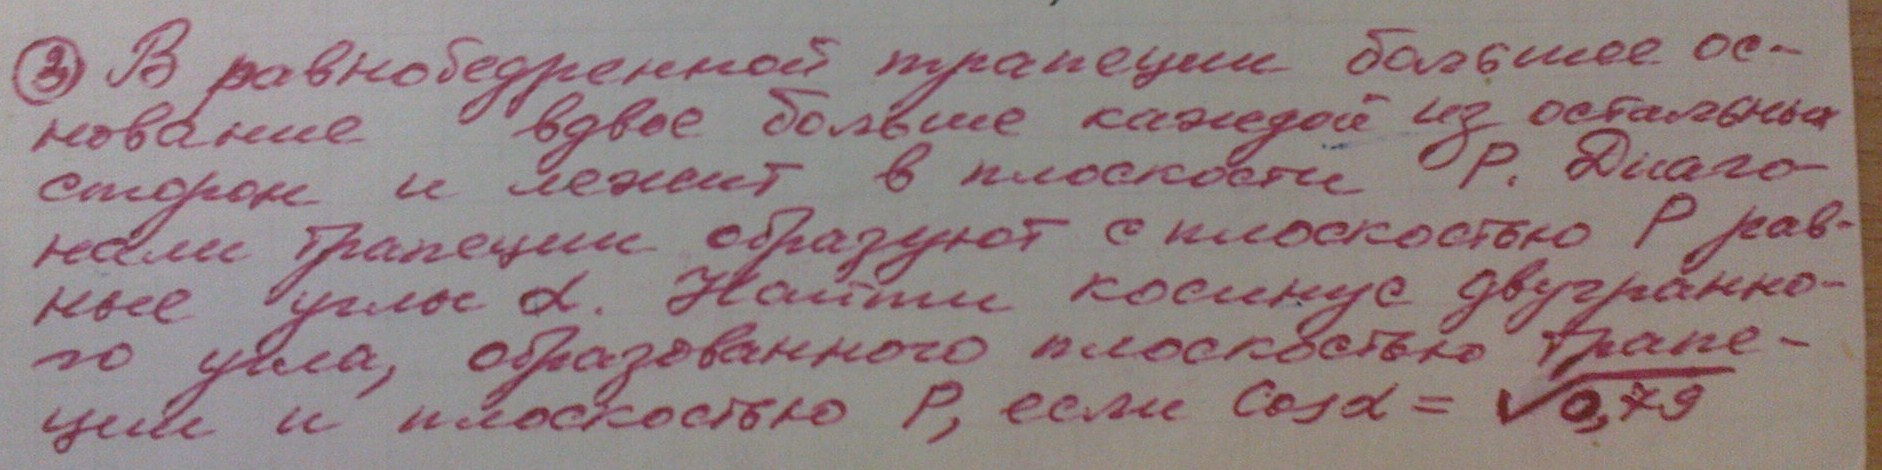 3) В равнобедренной трапеции большее ос-
нование вдвое больше каждой из остальных
сторон и лежит в плоскости P. Диаго-
нали трапеции образуют с плоскостью P рав-
ные углы α. Найти косинус двугранно-
го угла, образованного плоскостью трапе-
ции и плоскостью P, если Cosα = √0,79